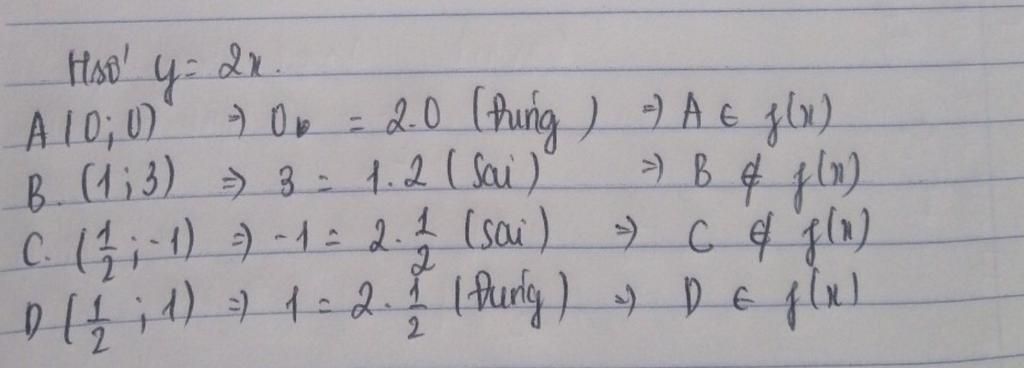 Hsô' y = 2x.
A (0; 0) => 0 = 2.0 (Đúng) => A ∈ f(x)
B. (1; 3) => 3 = 1.2 (Sai) => B ∉ f(x)
C. (1/2; -1) => -1 = 2. 1/2 (sai) => C ∉ f(x)
D (1/2; 1) => 1 = 2. 1/2 (Đúng) => D ∈ f(x)